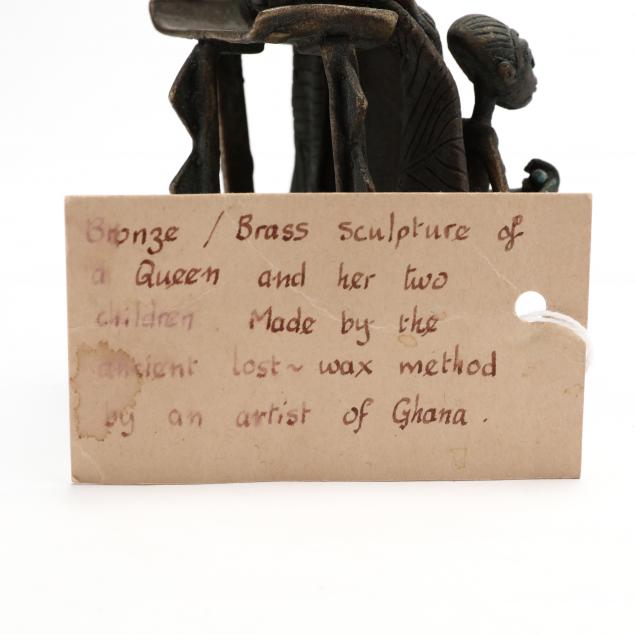 Bronze / Brass sculpture of
a Queen and her two
children. Made by the
ancient lost~wax method
by an artist of Ghana.